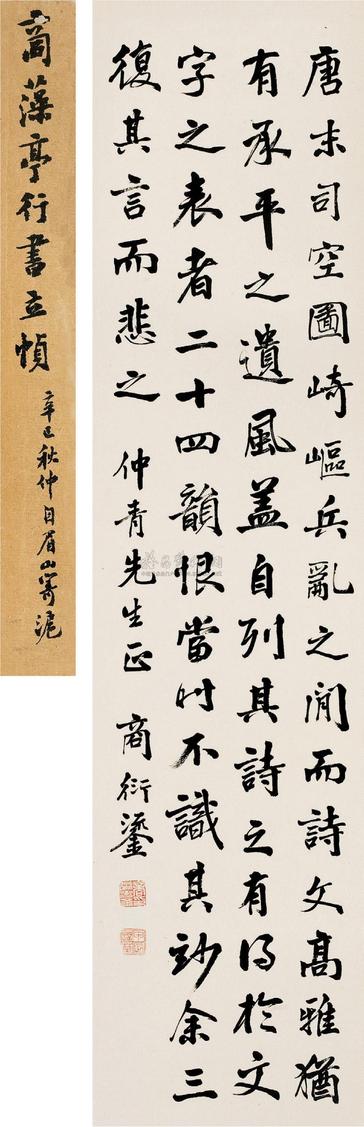 唐末司空圖崎嶇兵亂之間而詩文高雅猶
有承平之遺風蓋自列其詩之有得於文
字之表者二十四韻恨當時不識其妙余三
復其言而悲之 仲青先生正 商衍鎏
商藻亭行書立幀
辛巳秋仲自眉山寄滬